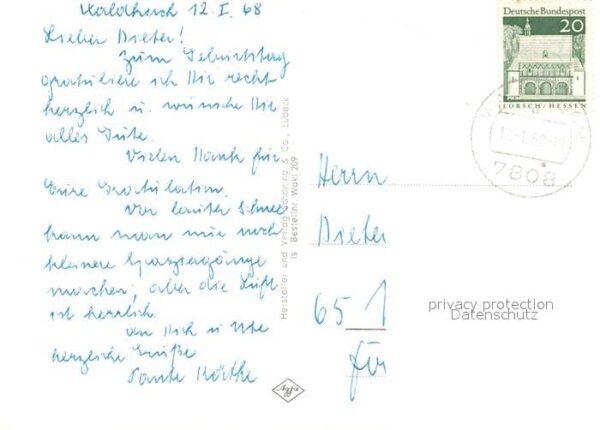 Waldkirch 12.I.68
Lieber Dieter!
Zum Geburtstag
gratuliere ich Dir recht
herzlich u. wünsche Dir
alles Gute.
Vielen Dank für
Eure Gratulation.
Vor lauter Schnee
kann man nur noch
kleinere Spaziergänge
machen, aber die Luft
ist herrlich.
An Dich u Ute
herzliche Grüße
Tante
Hersteller und Verlag Schöning & Co., Lübeck
is Bestellnr. Waki 209
Agfa
Deutsche Bundespost
20
LORSCH/HESSEN
12.-1.68-
7808
Herrn
Dieter
65 1
für
privacy protection
Datenschutz